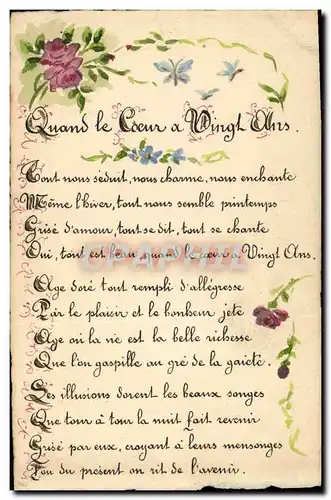 Quand le Cœur a Vingt Ans.
Tout nous séduit, nous charme, nous enchante
Même l'hiver, tout nous semble printemps
Grisé d'amour, tout se dit, tout se chante
Oui, tout est beau, quand le cœur a Vingt Ans.
Age doré tout rempli d'allégresse
Par le plaisir et le bonheur jeté
Age où la vie est la belle richesse
Que l'on gaspille au gré de la gaieté.
Les illusions dorent les beaux songes
Que tour à tour la nuit fait revenir
Grisé par eux, croyant à leurs mensonges
Fou du present on rit de l'avenir.